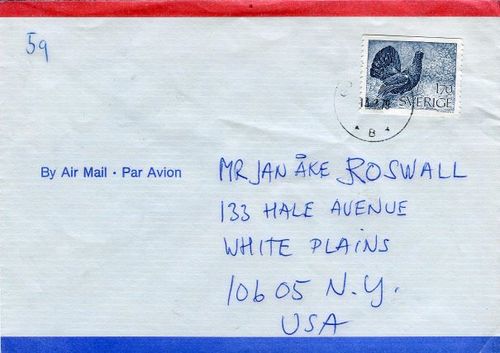 5g
170
SVERIGE
B
By Air Mail · Par Avion
MR JAN ÅKE ROSWALL
133 HALE AVENUE
WHITE PLAINS
10605 N.Y.
USA